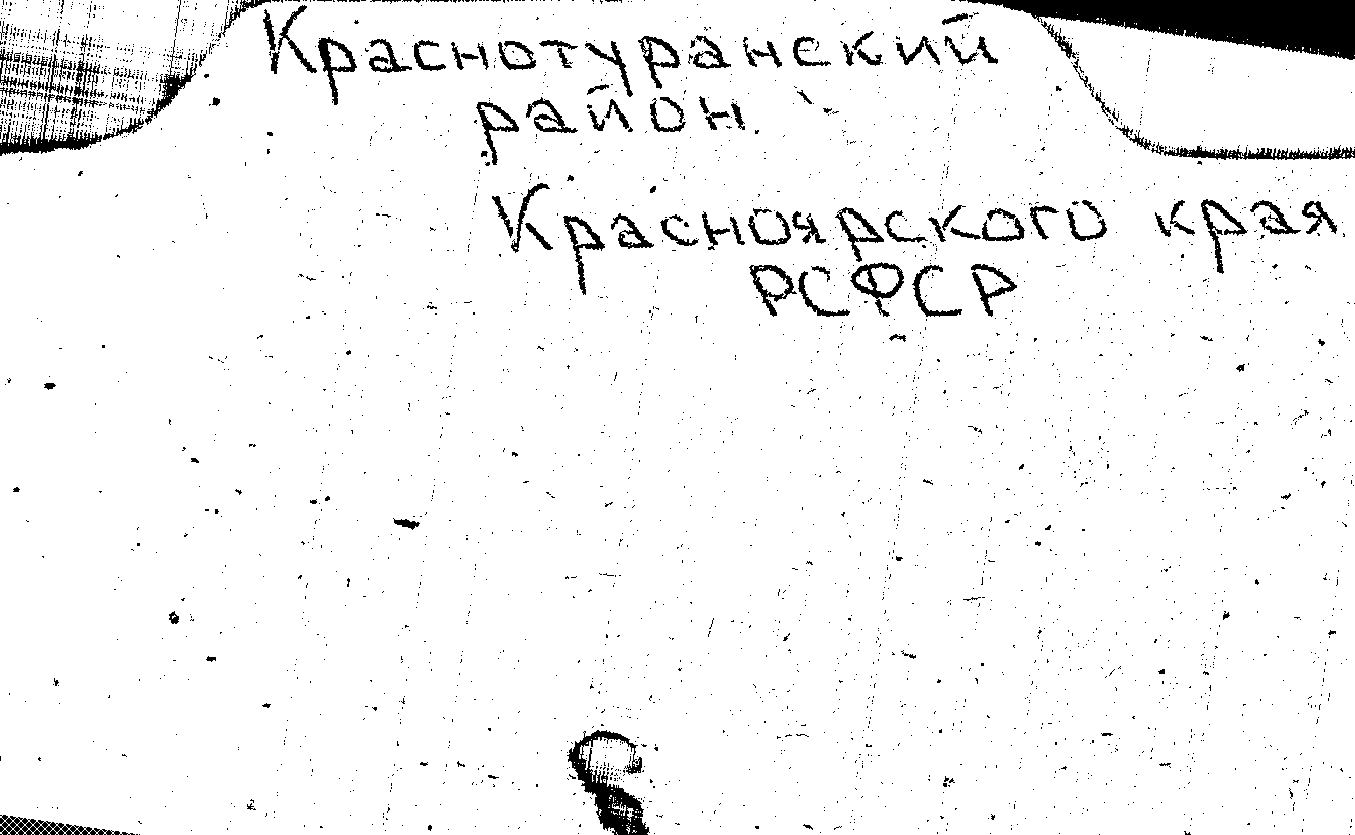 Краснотуранский
район
Красноярского края
РСФСР